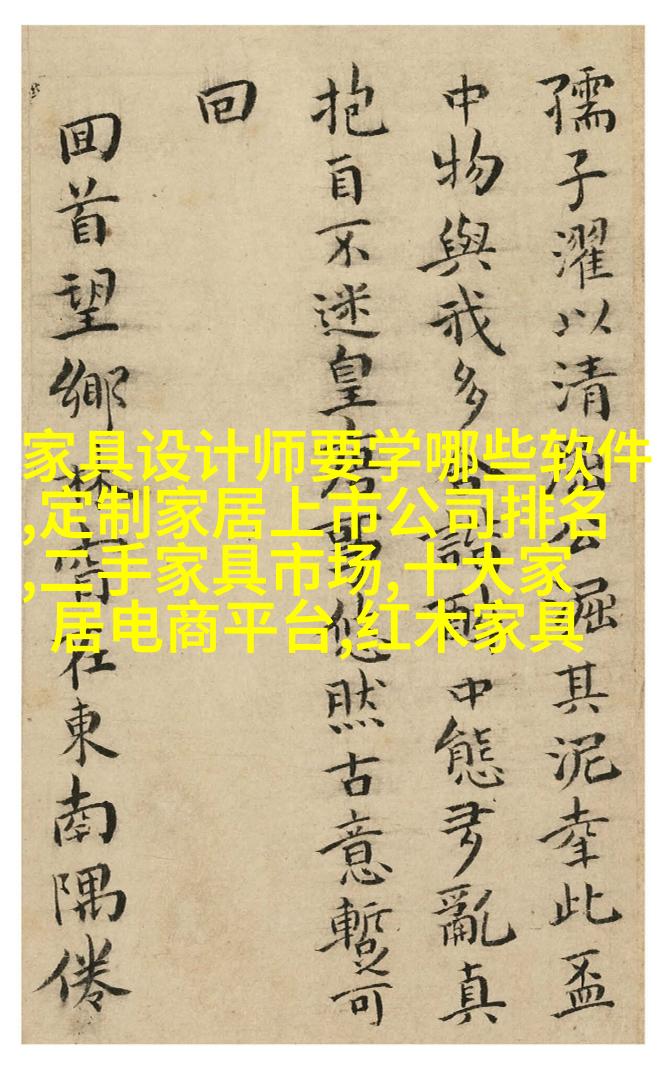 孺子濯以清掘其泥幸此盃
中物與我多諧中態多亂真
抱自不迷皇唐悠然古意暫可
回
囬首望鄉林在東南隅倦
家具设计师要学哪些软件
,定制家居上市公司排名
,二手家具市场,十大家
居电商平台,红木家具